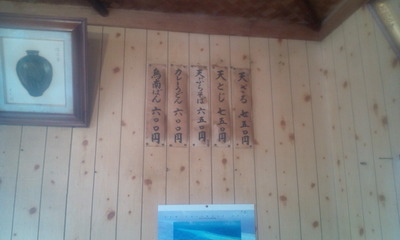 天ざる 七五〇円
天とじ 七五〇円
天ぷらそば 六五〇円
カレーうどん 六〇〇円
鳥南ばん 六〇〇円